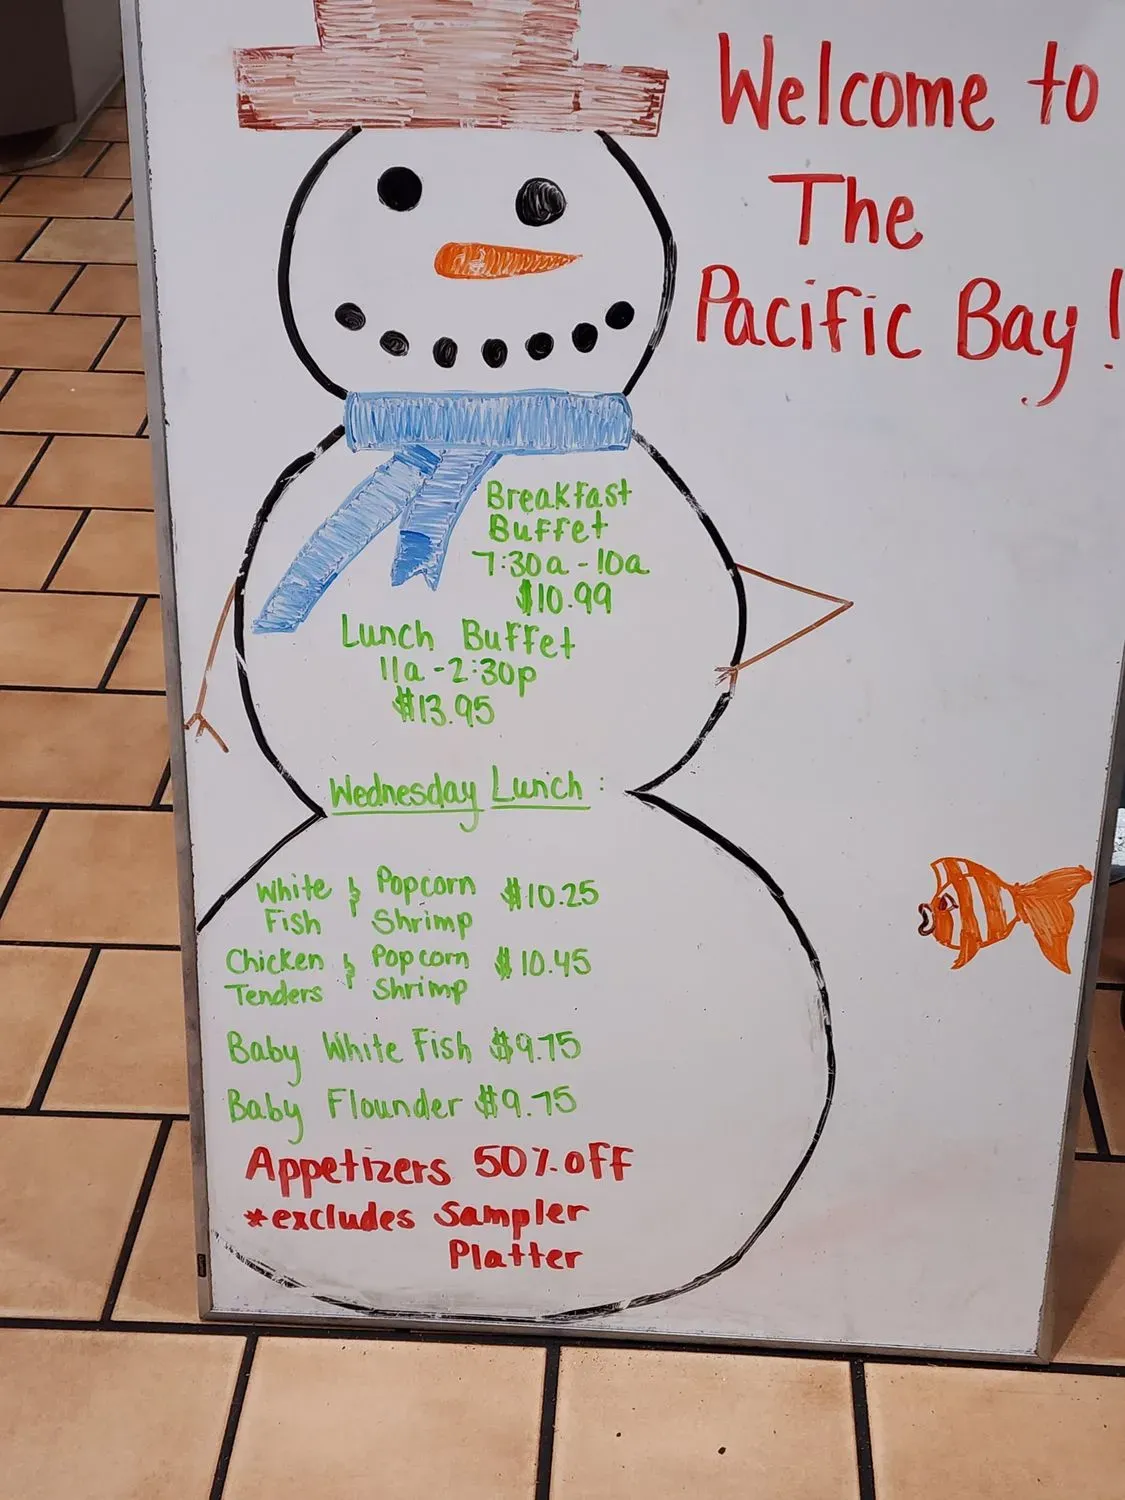 Welcome to
The
Pacific Bay!
Breakfast
Buffet
7:30a - 10a
$10.99
Lunch Buffet
11a - 2:30p
$13.95
Wednesday Lunch:
White & Popcorn $10.25
Fish Shrimp
Chicken & Popcorn $10.45
Tenders Shrimp
Baby White Fish $9.75
Baby Flounder $9.75
Appetizers 50% off
*excludes Sampler
Platter